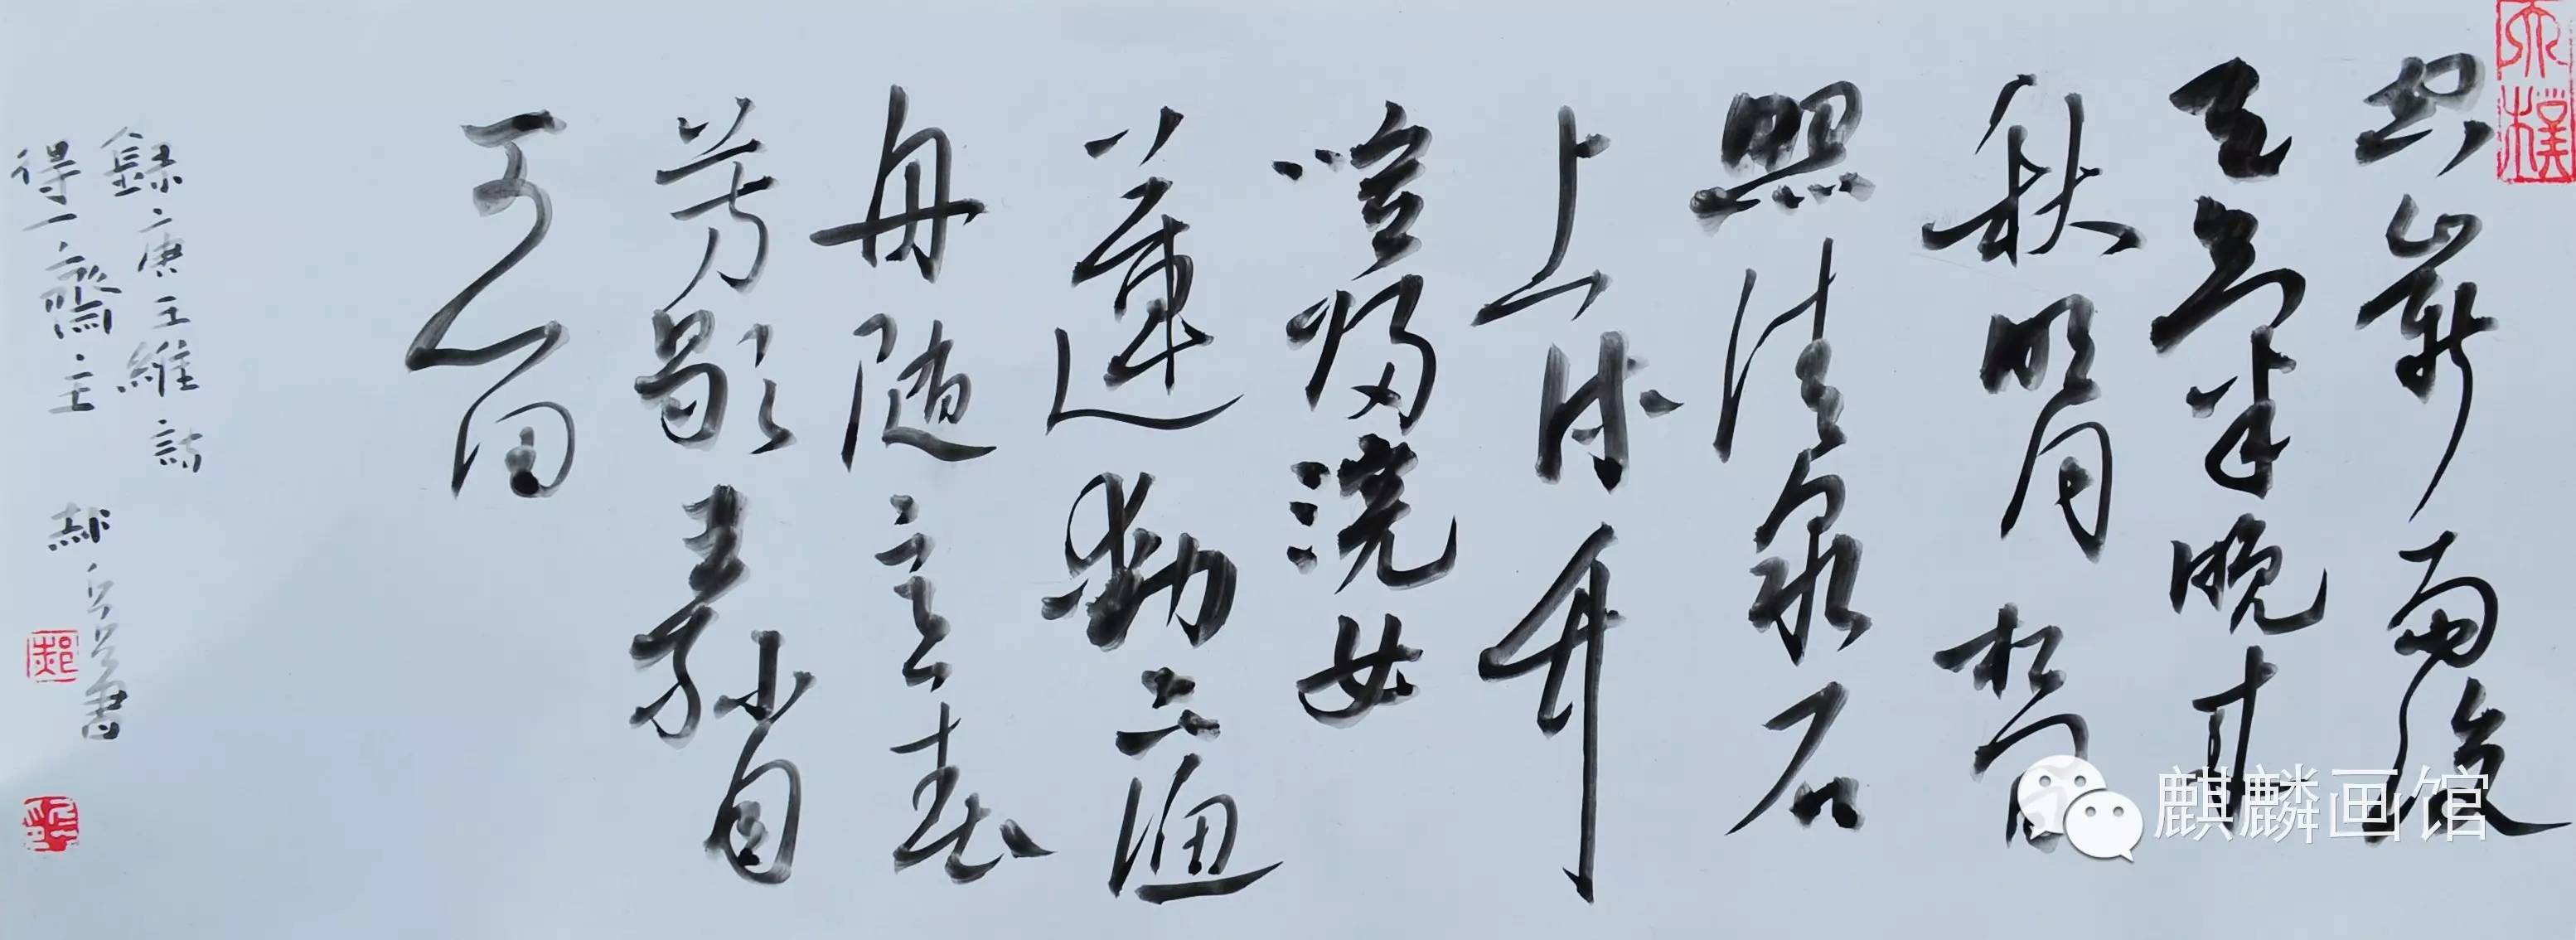 空山新雨後
天氣晚来
秋明月松間
照清泉石
上流竹
喧歸浣女
蓮動下漁
舟随意春
芳歇王孫自
可留
錄唐王維詩
得一齋主 郝書
郝
麒麟画馆